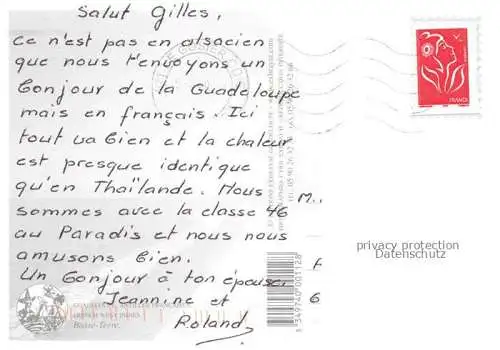 Salut Gilles,
Ce n'est pas en alsacien
que nous t'envoyons un
Bonjour de la Guadeloupe
mais en français. Ici
tout va bien et la chaleur
est presque identique
qu'en Thaïlande. Nous
sommes avec la classe 46
au Paradis et nous nous
amusons bien.
Un Bonjour à ton épouse.
Jeannine et
Roland
M..
6
FRANCE
privacy protection
Datenschutz
Basse-Terre.
3 349740 001128